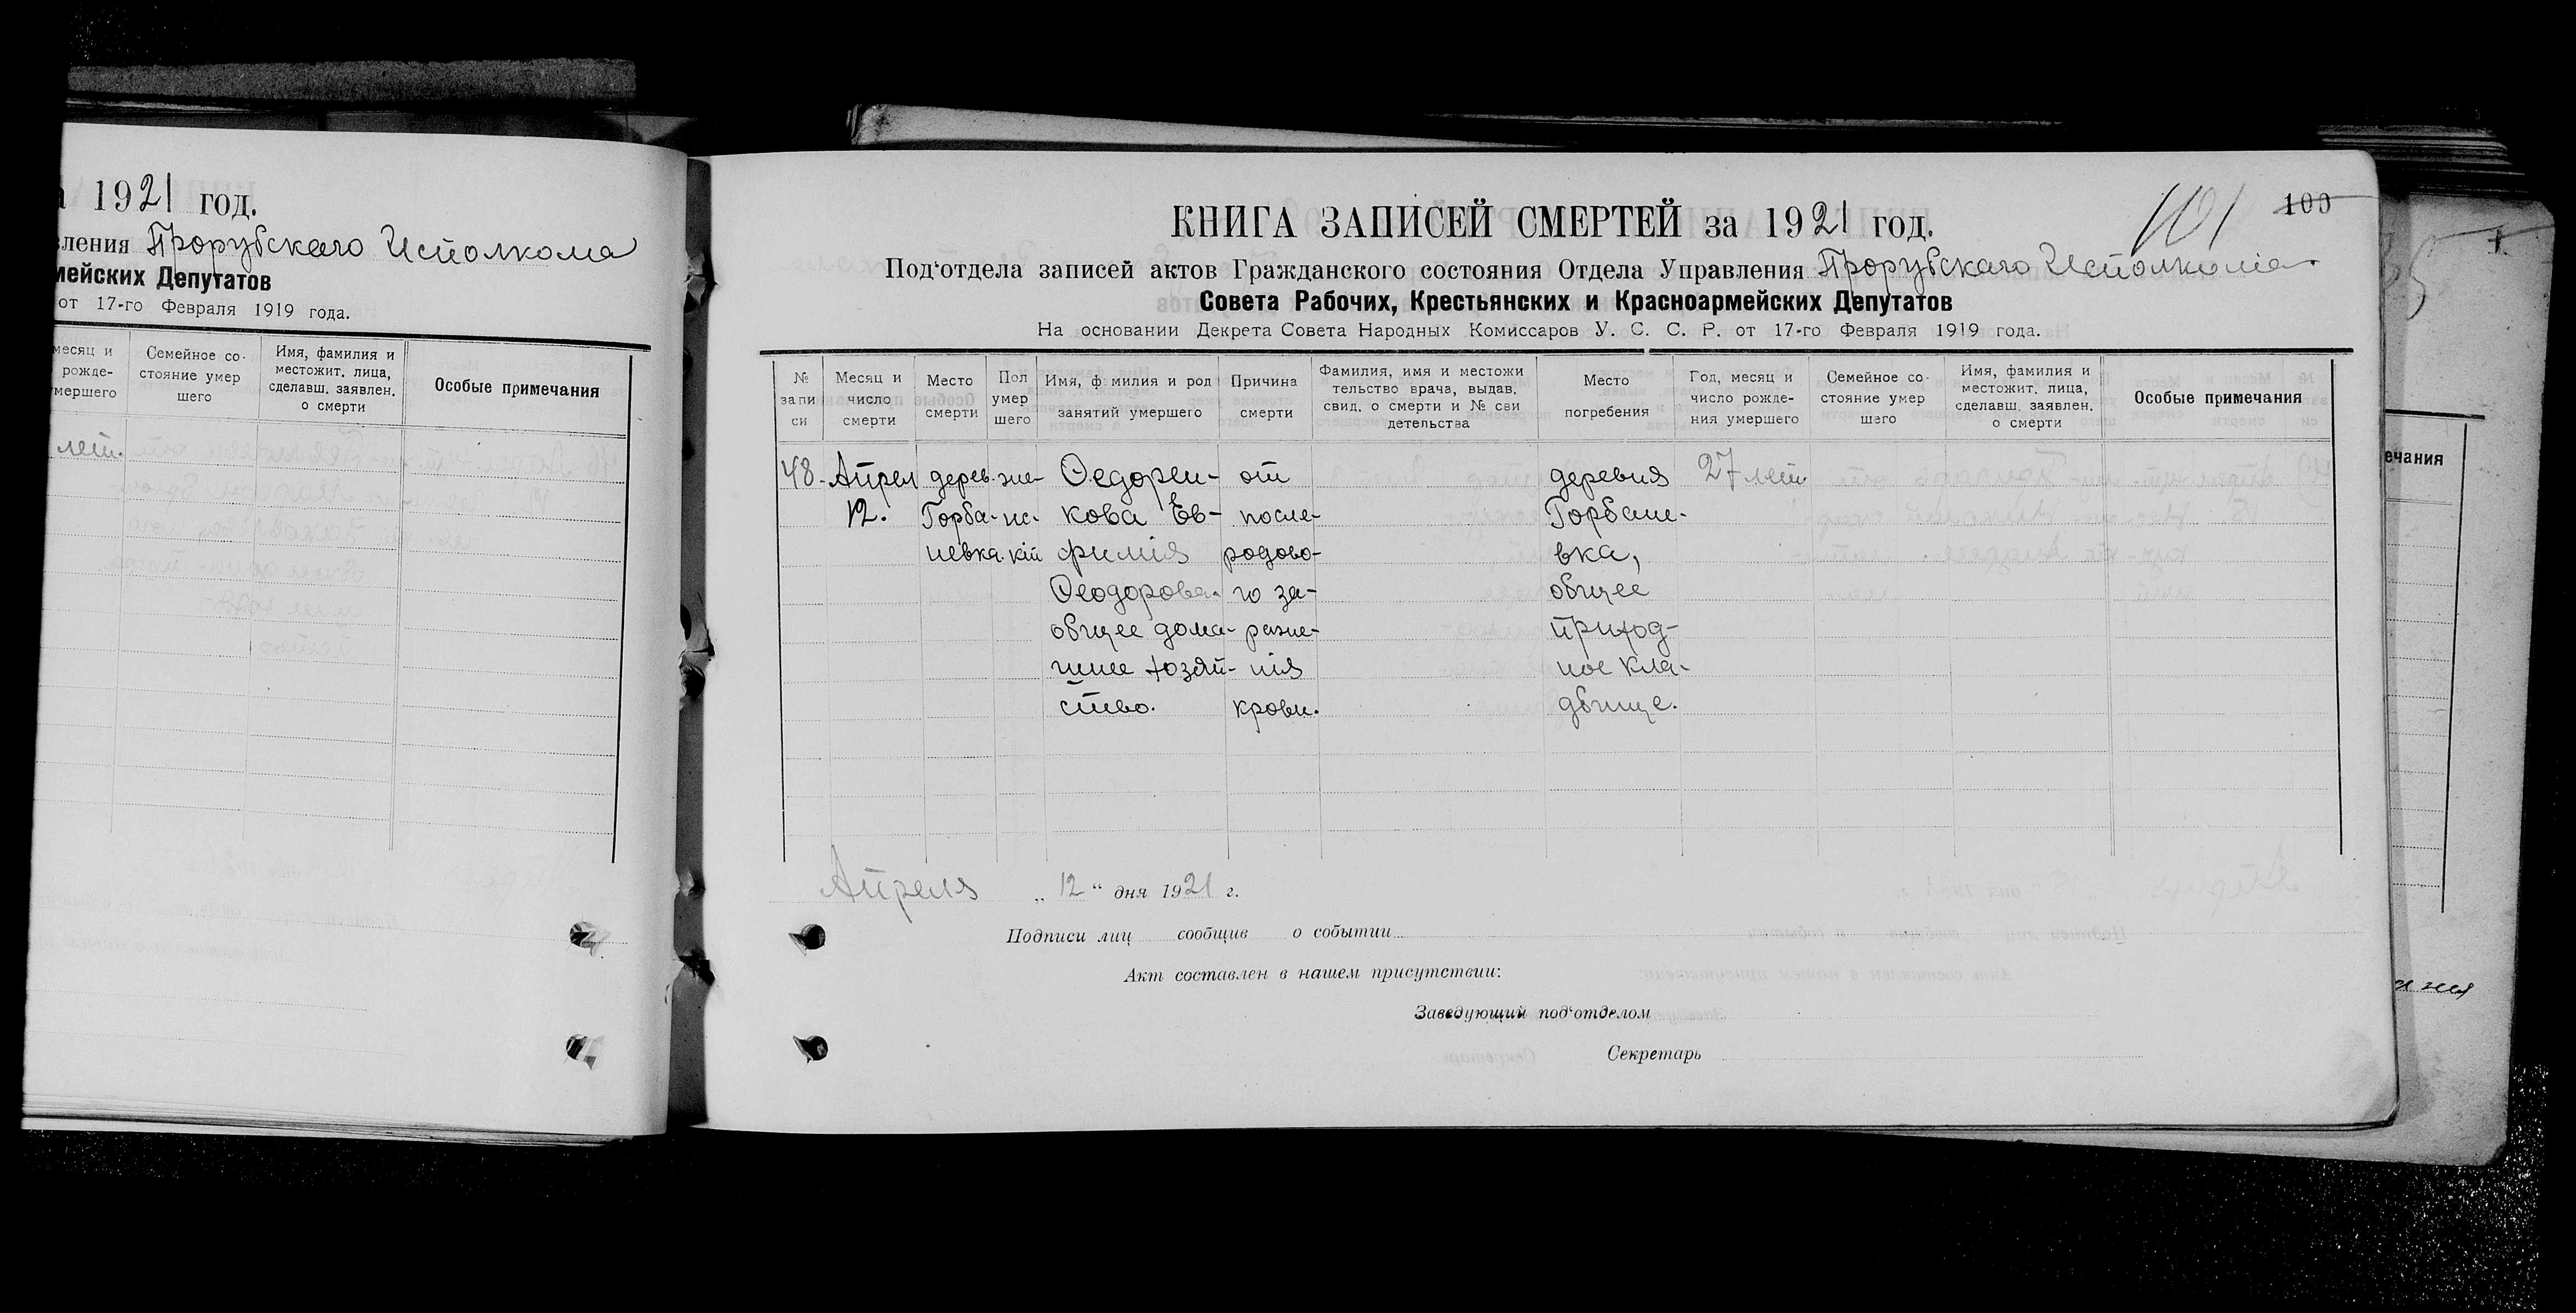 1921 год.
вления Прорубскаго Исполкома
мейских Депутатов
от 17-го Февраля 1919 года.
месяц и
рожде-
мершего
Семейное со-
стояние умер
шего
Имя, фамилия и
местожит. лица,
сделавш. заявлен.
о смерти
Особые примечания
лет.
КНИГА ЗАПИСЕЙ СМЕРТЕЙ за 1921 год.
101
100
Под‘отдела записей актов Гражданского состояния Отдела Управления Прорубскаго Исполкома
Совета Рабочих, Крестьянских и Красноармейских Депутатов
На основании Декрета Совета Народных Комиссаров У. С. С. Р. от 17-го Февраля 1919 года.
№
запи
си
Месяц и
число
смерти
Место
смерти
Пол
умер
шего
Имя, ф милия и род
занятий умершего
Причина
смерти
Фамилия, имя и местожи
тельство врача, выдав.
свид. о смерти и № сви
детельства
Место
погребения
Год, месяц и
число рожде-
ния умершего
Семейное со-
стояние умер
шего
Имя, фамилия и
местожит. лица,
сделавш. заявлен.
о смерти
Особые примечания
48.
Апрел
12.
дерев.
Горба-
невка.
же-
нс-
кій
Федорен-
кова Ев-
фимія
Феодорова.
общее дома-
шнее хозяй-
ство.
от
после-
родово-
го за-
раже-
нія
крови.
деревня
Горбане-
вка,
общее
приход-
ное кла-
дбище.
27 лет.
Апреля „ 12 “ дня 1921 г.
Подписи лиц сообщив о событии
Акт составлен в нашем присутствии:
Заведующий под‘отделом
Секретарь
ечания